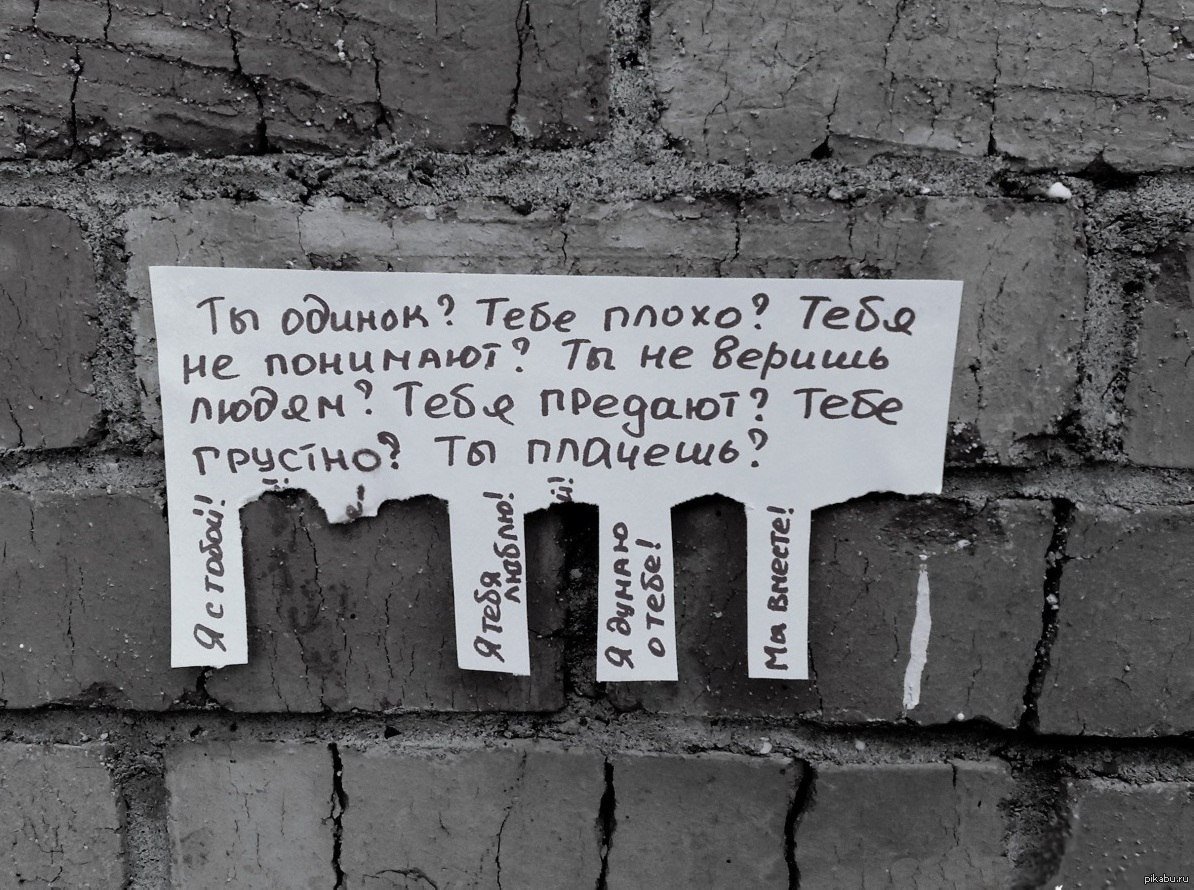 Ты одинок? Тебе плохо? Тебя
не понимают? Ты не веришь
людям? Тебя предают? Тебе
грустно? Ты плачешь?
Я с тобой!
Я тебя
люблю!
й!
Я думаю
о тебе!
Мы вместе!
pikabu.ru